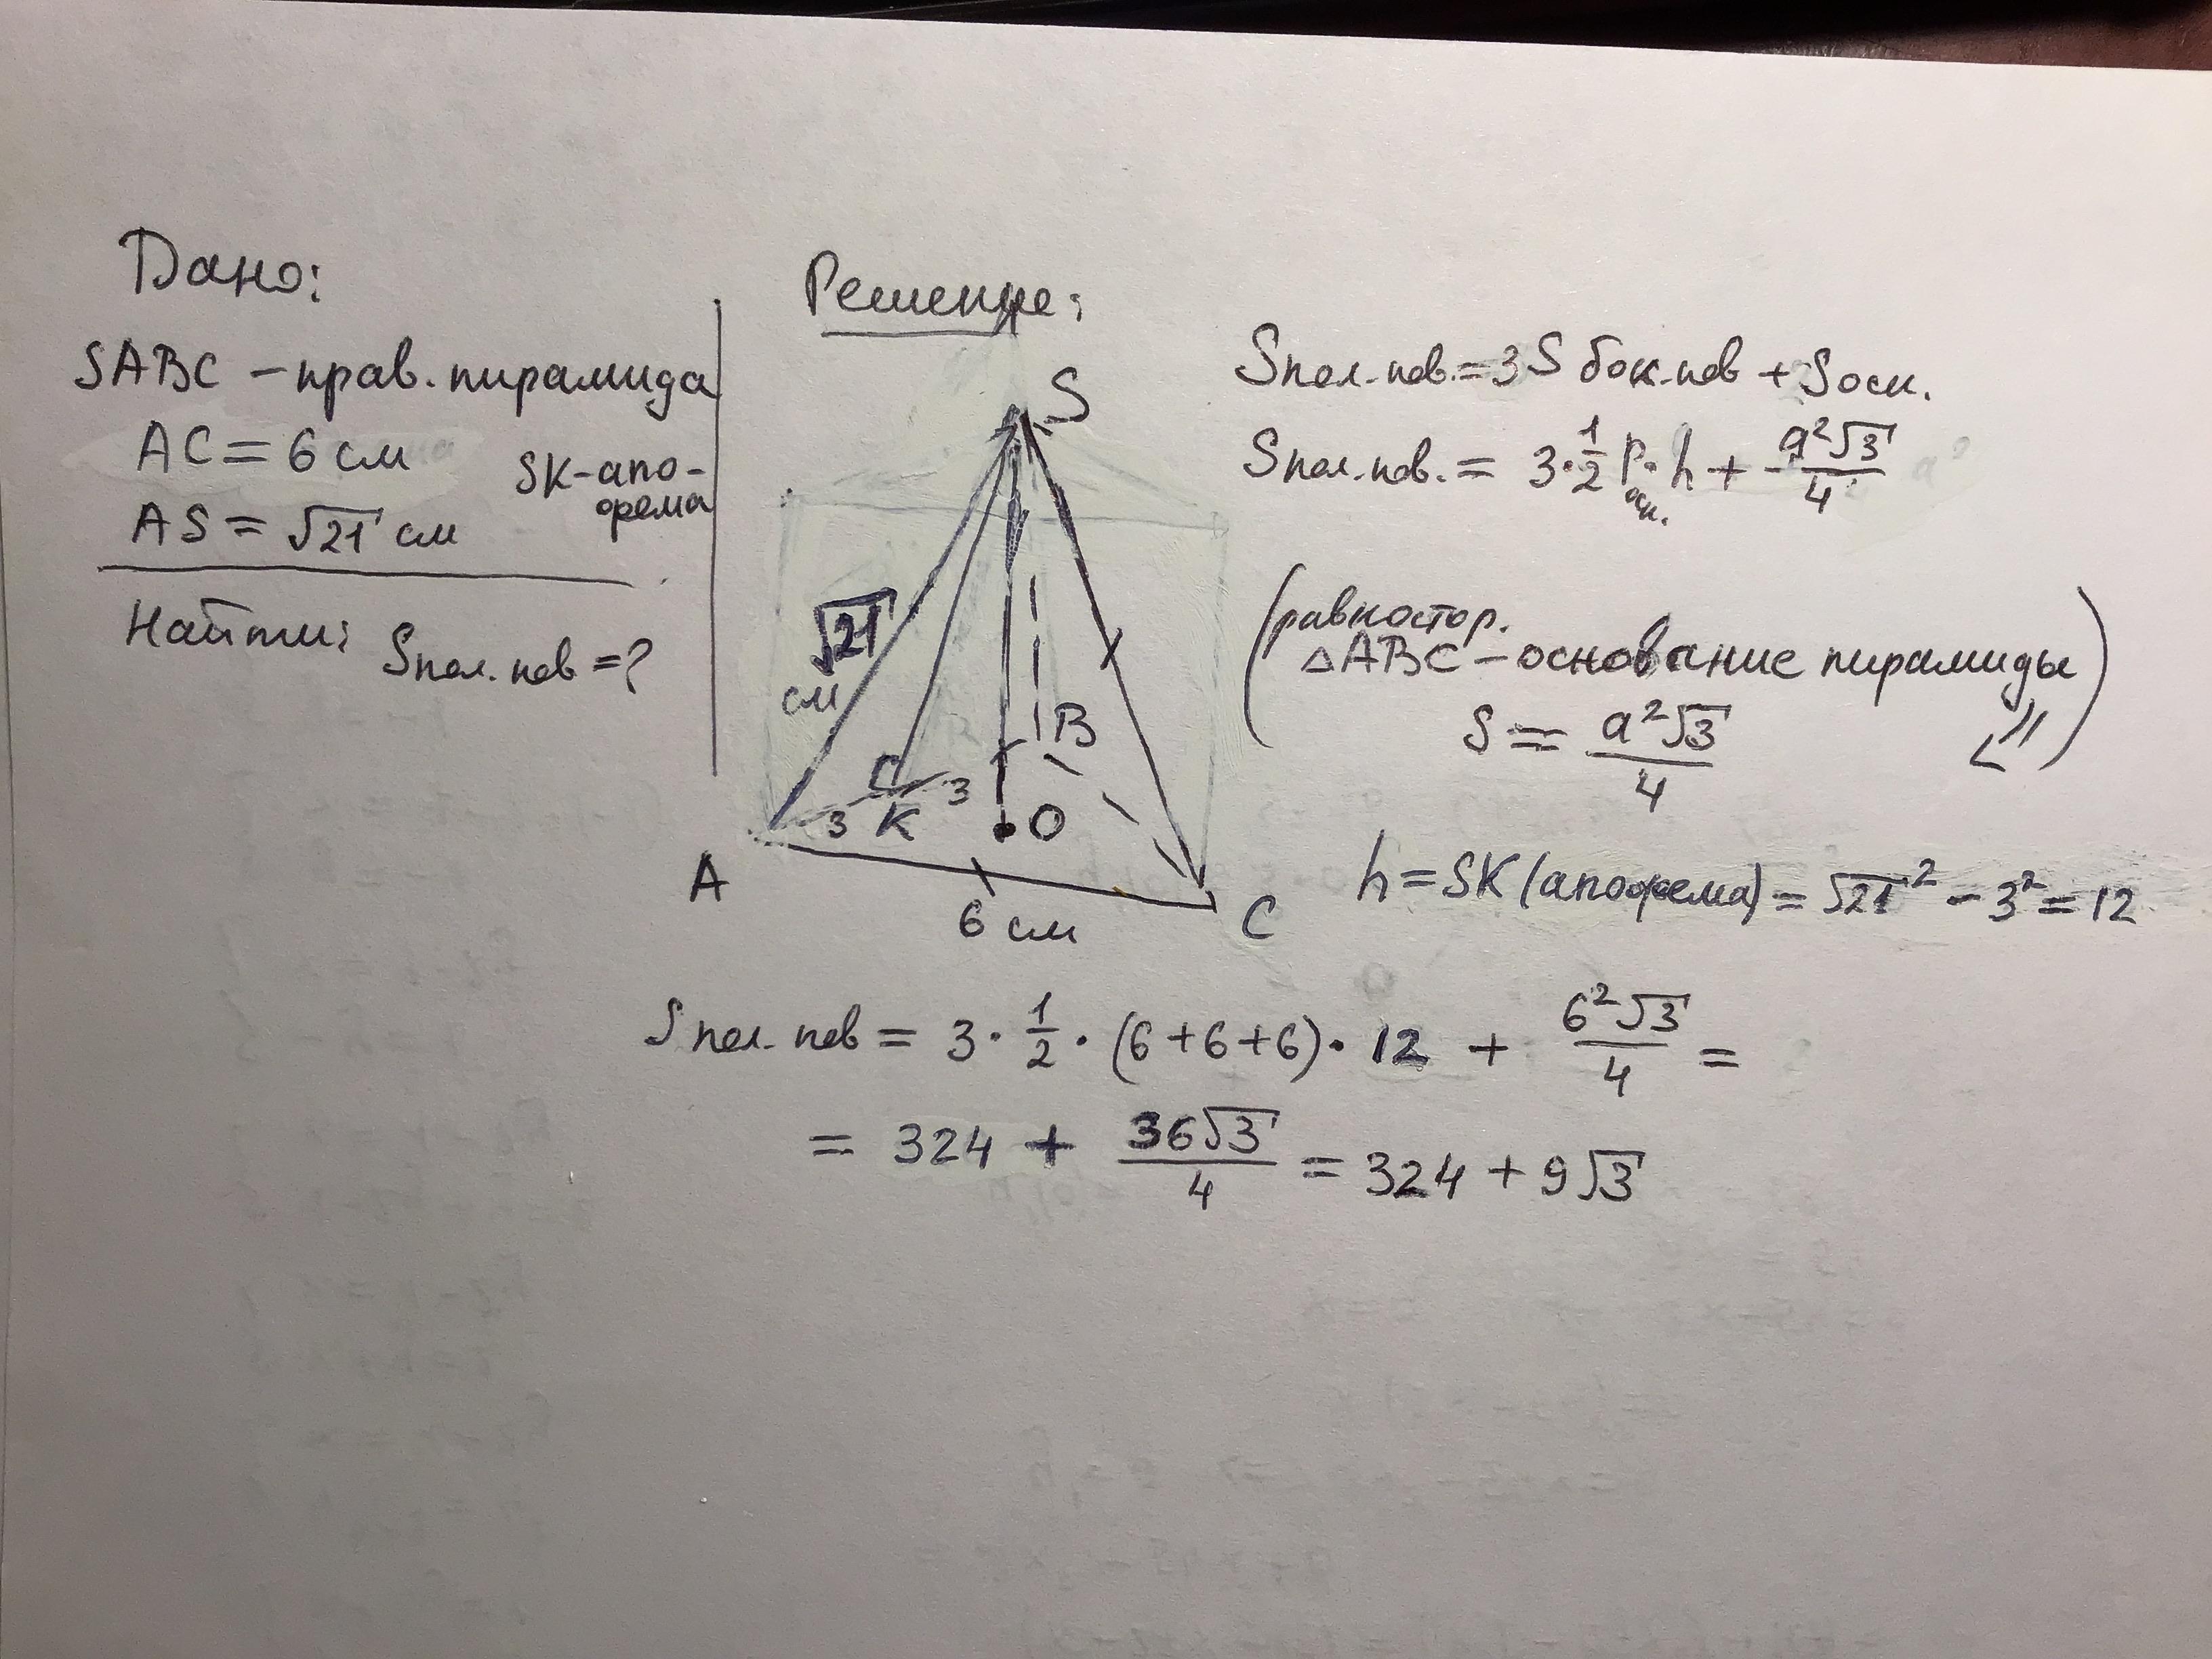 Дано:
SABC – прав. пирамида
AC = 6 см
SK - апо-
фема
AS = √21 см
Найти: Sпол. пов = ?
Решение:
S
√21
см
B
3
K
3
O
A
6 см
C
Sпол. пов. = 3S бок. пов + Sосн.
Sпол. пов. = 3 · 1/2 Pосн. · h + a²√3/4
(равностор.
△ABC – основание пирамиды)
S = a²√3/4
h = SK (апофема) = √21² – 3² = 12
Sпол. пов = 3 · 1/2 · (6+6+6) · 12 + 6²√3/4 =
= 324 + 36√3/4 = 324 + 9√3